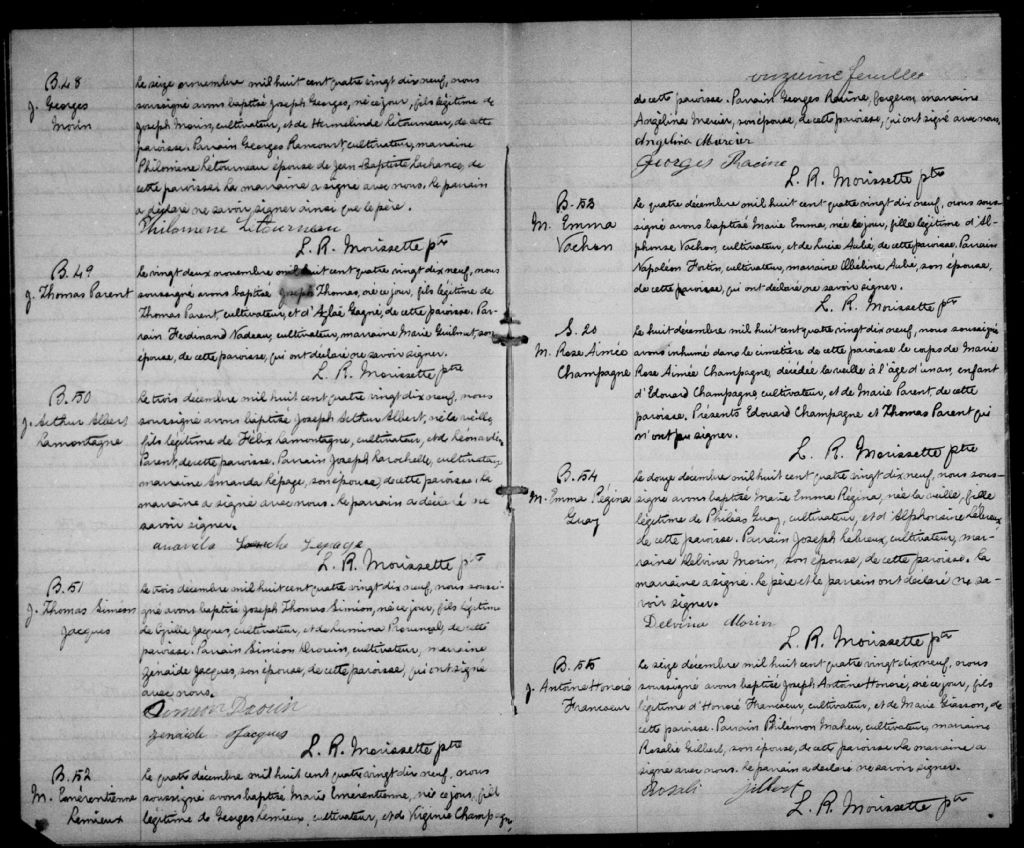 B. 48
J. Georges
Morin
Le seize novembre mil huit cent quatre vingt dix neuf, nous
soussigné avons baptisé Joseph Georges, né ce jour, fils légitime de
Joseph Morin, cultivateur, et de Hermelinde Létourneau, de cette
paroisse. Parrain Georges Rancourt, cultivateur, marraine
Philomène Létourneau épouse de Jean-Baptiste Lachance, de
cette paroisse. La marraine a signé avec nous. Le parrain
a déclaré ne savoir signer ainsi que le père.
Philomene Letourneau
L. R. Morissette ptre
B. 49
J. Thomas Parent
Le vingt deux novembre mil huit cent quatre vingt dix neuf, nous
soussigné avons baptisé Joseph Thomas, né ce jour, fils légitime de
Thomas Parent, cultivateur, et d'Aglaé Gagné, de cette paroisse. Par-
rain Ferdinand Nadeau, cultivateur, marraine Marie Guilmet, son
épouse, de cette paroisse, qui ont déclaré ne savoir signer.
L. R. Morissette ptre
B. 50
J. Arthur Albert
Lamontagne
Le trois décembre mil huit cent quatre vingt dix neuf, nous
soussigné avons baptisé Joseph Arthur Albert, né la veille,
fils légitime de Félix Lamontagne, cultivateur, et de Léonardine
Parent, de cette paroisse. Parrain Joseph Larochelle, cultivateur,
marraine Amanda Lepage, son épouse, de cette paroisse. La
marraine a signé avec nous. Le parrain a déclaré ne
savoir signer.
Lepage
L. R. Morissette ptre
B. 51
J. Thomas Siméon
Jacques
Le trois décembre mil huit cent quatre vingt dix neuf, nous soussi-
gné avons baptisé Joseph Thomas Siméon, né ce jour, fils légitime
de Cyrille Jacques, cultivateur, et de Lumina Provençal, de cette
paroisse. Parrain Siméon Drouin, cultivateur, marraine
Zénaïde Jacques, son épouse, de cette paroisse, qui ont signé
avec nous.
Simeon Drouin
Zenaide Jacques
L. R. Morissette ptre
B. 52
M. Emérentienne
Lemieux
Le quatre décembre mil huit cent quatre vingt dix neuf, nous
soussigné avons baptisé Marie Emérentienne, née ce jour, fille
légitime de Georges Lemieux, cultivateur, et de Virginie Champagne,
onzième feuillet
de cette paroisse. Parrain Georges Racine, forgeron, marraine
Angélina Mercier, son épouse, de cette paroisse, qui ont signé avec nous.
Angeline Mercier
Georges Racine
L. R. Morissette ptre
B. 53
M. Emma
Vachon
Le quatre décembre mil huit cent quatre vingt dix neuf, nous sous-
signé avons baptisé Marie Emma, née le jour, fille légitime d'Al-
phonse Vachon, cultivateur, et de Lucie Aubé, de cette paroisse. Parrain
Napoléon Fortin, cultivateur, marraine Obéline Aubé, son épouse,
de cette paroisse, qui ont déclaré ne savoir signer.
L. R. Morissette ptre
S. 20
M. Rose Aimée
Champagne
Le huit décembre mil huit cent quatre vingt dix neuf, nous soussigné
avons inhumé dans le cimetière de cette paroisse le corps de Marie
Rose Aimée Champagne, décédée la veille à l'âge d'un an, enfant
d'Edouard Champagne, cultivateur, et de Marie Parent, de cette
paroisse. Présents Edouard Champagne et Thomas Parent qui
n'ont pu signer.
L. R. Morissette ptre
B. 54
M. Emma Régina
Guay
Le douze décembre mil huit cent quatre vingt dix neuf, nous sous-
signé avons baptisé Marie Emma Régina, née la veille, fille
légitime de Philéas Guay, cultivateur, et d'Alphonsine Lebreux
de cette paroisse. Parrain Joseph Lebreux, cultivateur, mar-
raine Delvina Morin, son épouse, de cette paroisse. La
marraine a signé. Le père et le parrain ont déclaré ne sa-
voir signer.
Delvina Morin
L. R. Morissette ptre
B. 55
J. Antoine Honoré
Francoeur
Le seize décembre mil huit cent quatre vingt dix neuf, nous
soussigné avons baptisé Joseph Antoine Honoré, né ce jour, fils
légitime d'Honoré Francoeur, cultivateur, et de Marie Giasson, de
cette paroisse. Parrain Philémon Maheu, cultivateur, marraine
Rosalie Gilbert, son épouse, de cette paroisse. La marraine a
signé avec nous. Le parrain a déclaré ne savoir signer.
Rosali Jilbert
L. R. Morissette ptre